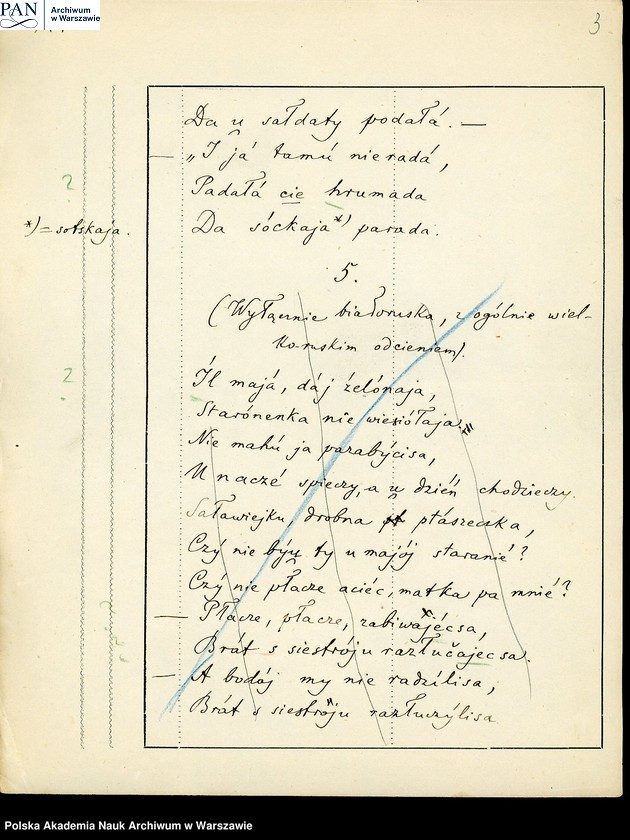 PAN
Archiwum
w Warszawie
3
Da u sałdaty podałá. —
— „I já tamú nieradá,
Padałá cię hrumada
*) = sotskaja.
Da sóckaja*) parada.
5.
(Wyłącznie białoruska, z ogólnie wiel-
ko-ruskim odcieniem).
Il majá, dáj żelónaja,
Starónenka nie wiesiółaja
Nie mahú ja parabýcisa,
U naczé spieczy, a u dzień chodzieczy.
Saławiejku, drobna ptászeczka,
Czý nie býu ty u majój staranié?
Czý nie płacze aciéc, matka pa mnié?
— Płacze, płacze, zabiwajécsa,
Brát s siestróju razłučajecsa.
— A bodój my nie radzílisa,
Brát s siestróju razłuczýlisa
Polska Akademia Nauk Archiwum w Warszawie